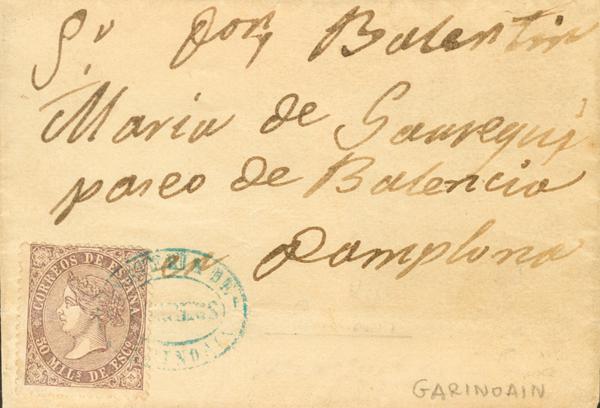 Sr Don Balentin
Maria de Jauregui
paseo de Balencia
en Pamplona
CORREOS DE ESPAÑA
50 MILS. DE ESCO.
GARINOAIN